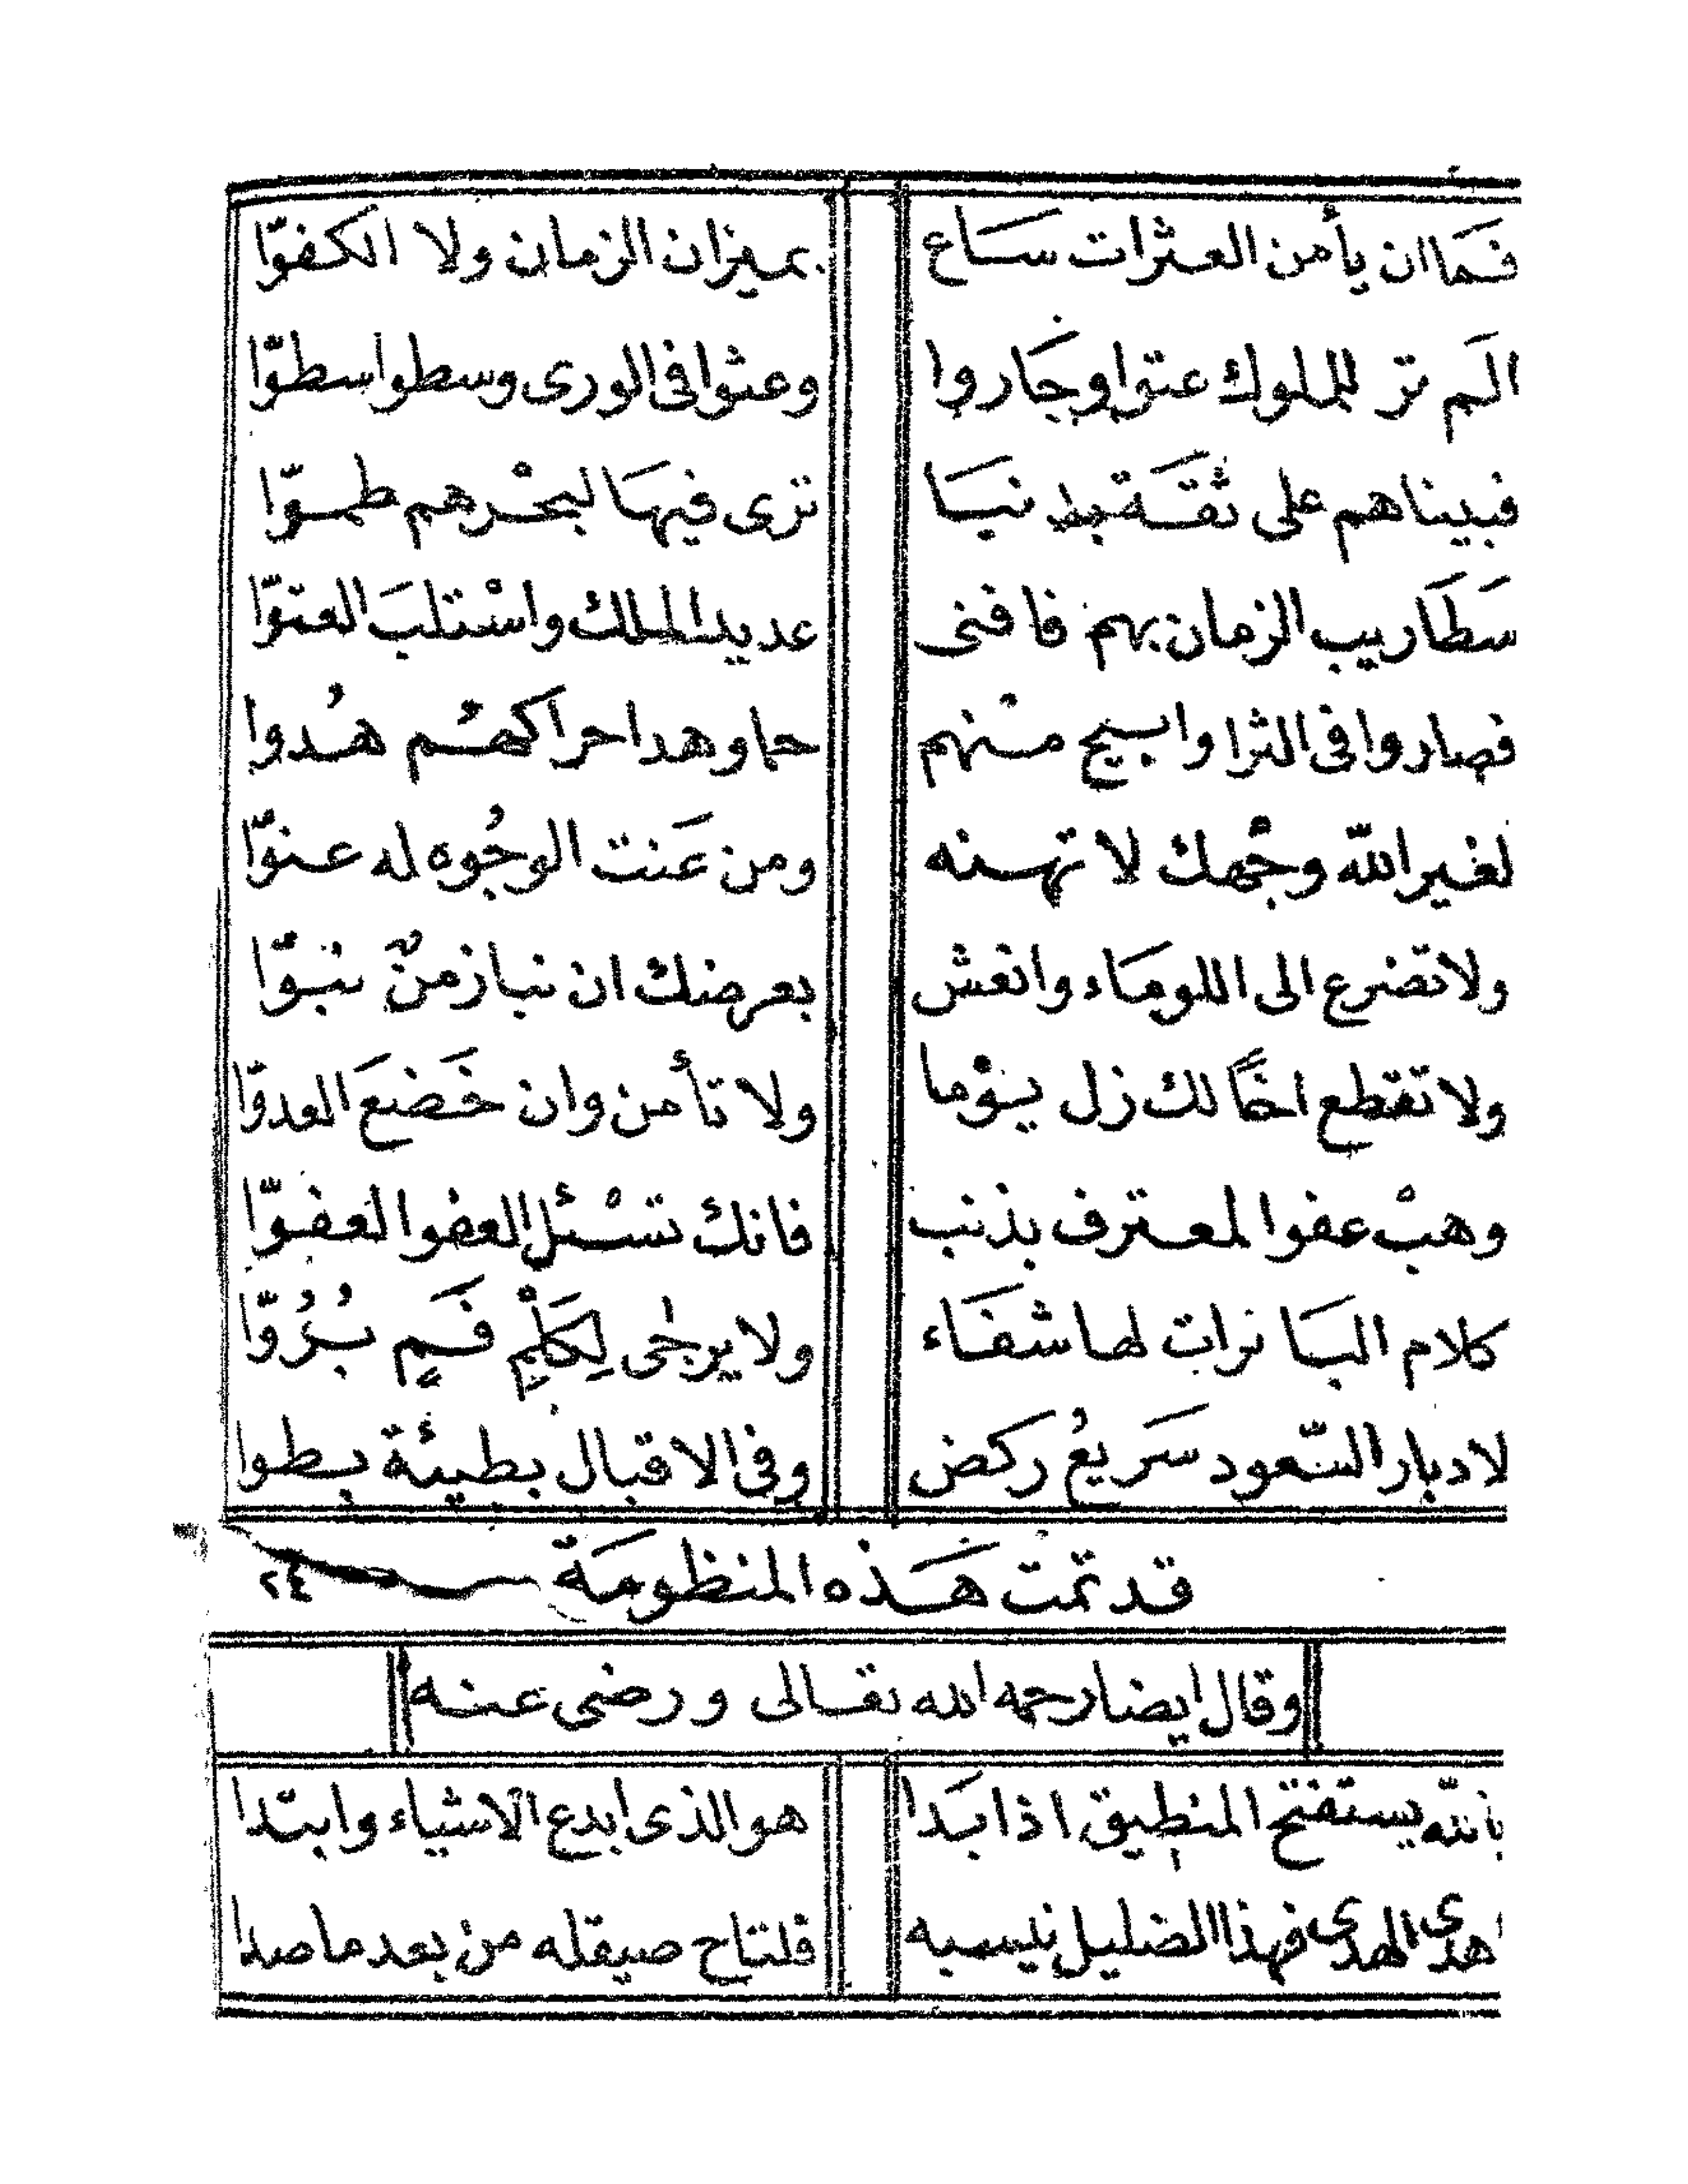 فَمَا ان يأمن العثرات سَاع بميزان الزمان ولا الكفوّا
الَم تر للملوك عتوا وجَاروا وعثوا فى الورى وسطوا سطوّا
فبيناهم على ثقَة بدنيَا ترى فيهَا لبحْرهم طموّا
سَطَا ريب الزمان بهم فافنى عديد الملك واسْتلبَ العتوّا
فصاروا فى الثرا وابيح منْهم حما وهدا حراكهُم هُدوا
لغير الله وجْهك لا تهنه ومن عَنت الوجُوه له عنوّا
ولا تضرع الى اللومَاء وانعش بعرضك ان نبا زمنٌ نبوّا
ولا تقطع اخًا لك زل يوْما ولا تأمن وان خَضعَ العدوّا
وهبْ عفوا لمعترف بذنب فانك تسْئل العفو العفوّا
كلام البَاترات لها شفَاء ولا يرجٰى لِكَلْمِ فَمٍ بُرُوّا
لادبار السّعود سَريعُ ركض وفى الاقبال بطيئة بطوا
قد تمت هَذه المنظومَة ٢٤
وقال ايضا رحمه الله تعالى ورضى عنه
بالله يستفتح المنطيق اذا بَدا هو الذى ابدع الاشياء وابتدا
هدى الهدى فهذا الضليل بيسبه فلتاح صيقله من بعد ما صدا